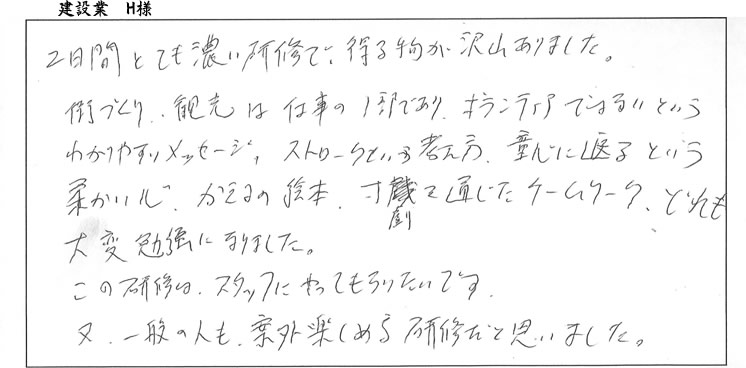 建設業 H様
2日間とても濃い研修で、得る物が沢山ありました。
街づくり、観光は仕事の1部であり、ボランティアではないという
わかりやすいメッセージ、ストロークという考え方、童心に返るという
柔かい心、かえるの絵本、寸劇を通じたチームワーク、どれも
大変勉強になりました。
この研修は、スタッフにやってもらいたいです。
又、一般の人も、案外楽しめる研修だと思いました。